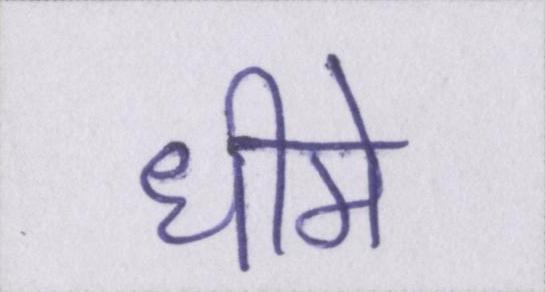 धीमे